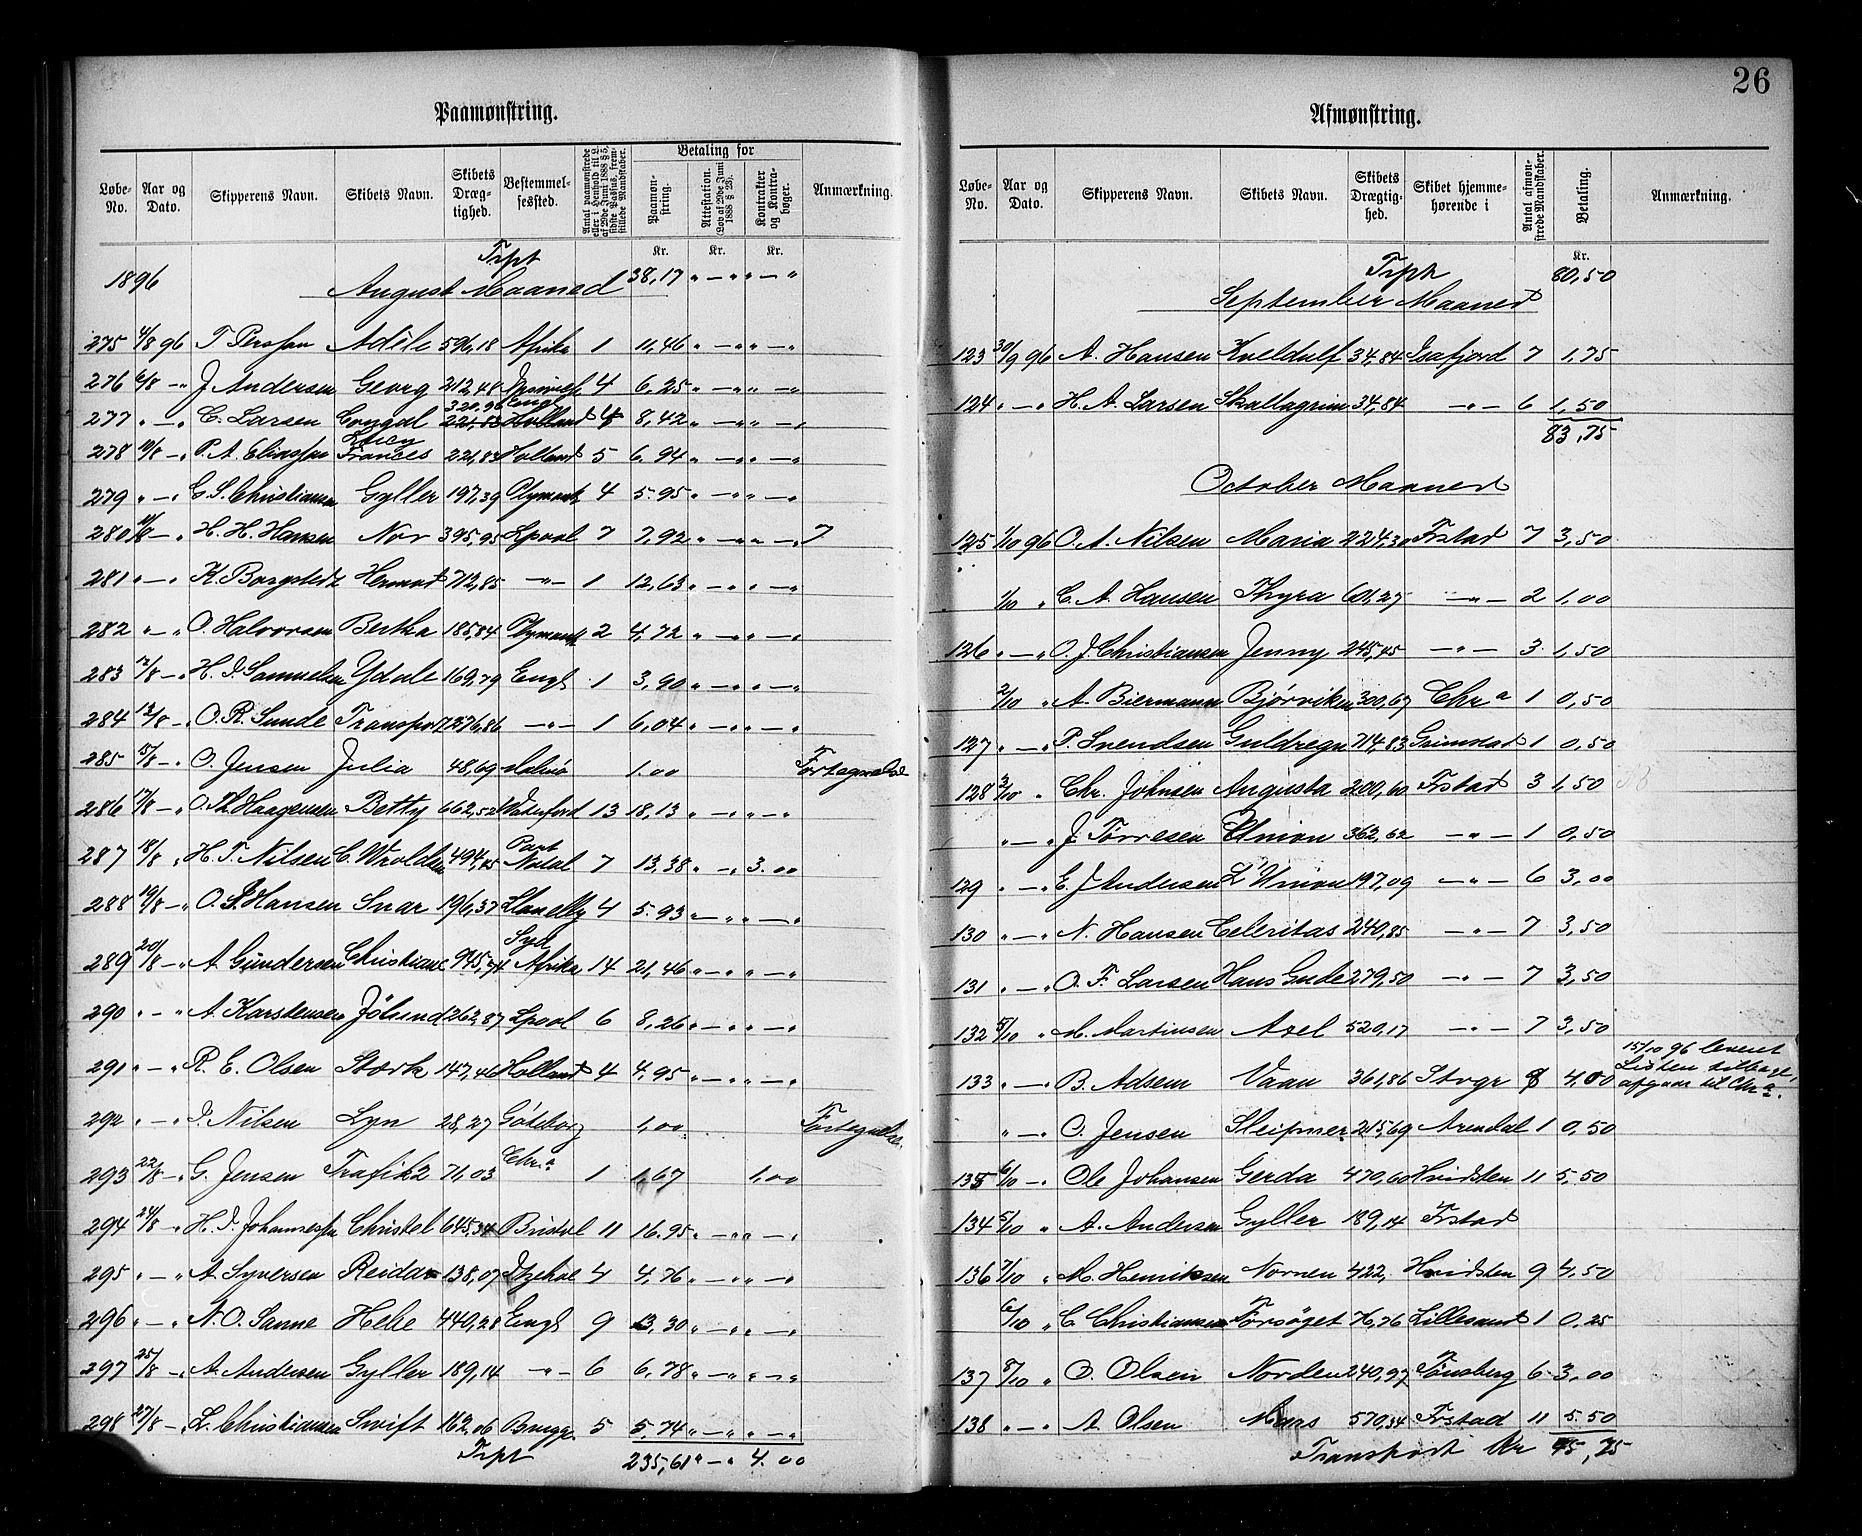 26
Paamønstring.
Løbe-No. | Aar og Dato. | Skipperens Navn. | Skibets Navn. | Skibets Dræg-tighed. | Bestemmel-sessted. | Antal paamønstrede eller i Henhold til L. af 29de Juni 1888 § 5, sidste Passus, frem-stillede Mandskaber. | Betaling for | Paamøn-string. | Attestation. (Lov af 29de Juni 1888 § 23). | Kontrakter og Kontra-bøger. | Anmærkning.
Kr. | Kr. | Kr.
1896 | Trpt | 38,17 „ — „ „ — „
August Maaned
275 4/8 96 | T Perssen | Adéle | 596,18 | Afrika | 1 | 11,46 „ — „ „ — „
276 6/8 — „ | J Andersen | Georg | 212,48 | 4 | 6,25 „ — „ „ — „
277 „ — „ | C. Larsen | 320,96 221,83 | Engl Holland | 4 | 8,42 „ — „ „ — „
278 10/8 — „ | P. A. Eliassen | Lucy Frances | 221,83 | Holland | 5 | 6,94 „ — „ „ — „
279 „ — „ | C. S. Christiansen | Gyller | 197,39 | Plymouth | 4 | 5,95 „ — „ „ — „
280 11/8 — „ | H. H. Hansen | Nor | 395,95 | Lpool | 7 | 7,92 „ — „ „ — „ | 7
281 „ — „ | K. Borgstedt | Hermod | 712,85 | — „ — | 1 | 12,63 „ — „ „ — „
282 „ — „ | O. Halvorsen | Bertha | 185,84 | Plymouth | 2 | 4,72 „ — „ „ — „
283 12/8 — „ | H. J. Samuelsen | Ydale | 169,79 | Engl | 1 | 3,90 „ — „ „ — „
284 13/8 — „ | O. R. Sunde | Transport | 276,86 | — „ — | 1 | 6,04 „ — „ „ — „
285 15/8 — „ | O. Jensen | Julia | 48,69 | Malmö | 1.00 | Fortegnelse
286 17/8 — „ | O. Th Haagensen | Betty | 662,52 | Waterford | 13 | 18,13 „ — „ „ — „
287 18/8 „ | H. T. Nilsen | C. Wroldsen | 494,45 | Port Natal | 7 | 13,38 „ — „ 3.00
288 19/8 — „ | O. S. Hansen | Snar | 196,37 | Llanelly | 4 | 5.93 „ — „ „ — „
289 20/8 — „ | A Gundersen | Christiane | 945,74 | Syd Afrika | 14 | 21,46 „ — „ „ — „
290 „ — „ | A Karstensen | Jölund | 262,87 | Lpool | 6 | 8,26 „ — „ „ — „
291 „ — „ | R. E. Olsen | Stærk | 147,46 | Holland | 4 | 4,95 „ — „ „ — „
292 „ — „ | J. Nilsen | Lyn | 28,27 | Göteborg | 1,00 | Fortegnelse
293 22/8 — „ | G. Jensen | Trafik 2 | 71,03 | Chr.a | 1 | 1,67 | 1,00
294 24/8 „ | H. J. Johannessen | Christel | 645,34 | Bristol | 11 | 16.95 „ — „ „ — „
295 „ — „ | A. Syversen | Reidar | 138,07 | Itzehoe | 4 | 4,76 „ — „ „ — „
296 „ — „ | N. O. Sanne | Hebe | 440,28 | Engl | 9 | 13,30 „ — „ „ — „
297 25/8 — „ | A. Andersen | Gyller | 189,14 | — „ — | 6 | 6,78 „ — „ „ — „
298 27/8 — „ | L. Christiansen | Swift | 162,06 | Brugge | 5 | 5,74 „ — „ „ — „
Trpt | 235,61 „ — „ 4.00
Afmønstring.
Løbe-No. | Aar og Dato. | Skipperens Navn. | Skibets Navn. | Skibets Drægtig-hed. | Skibet hjemme-hørende i | Antal afmøn-strede Mandskaber. | Betaling. | Anmærkning.
Kr.
Trpt | 80,50
September Maaned
123 30/9 96 | A. Hansen | Kveldulf | 34,84 | Isafjord | 7 | 1,75
124 „ — „ | H. A. Larsen | Skallagrim | 34,84 | — „ — | 6 | 1,50
83,75
October Maaned
125 1/10 96 | O. A. Nilsen | Maria | 224,30 | Frstad | 7 | 3,50
1/10 „ | C. A. Hansen | Thyra | 601,27 | — „ — | 2 | 1,00
126 „ — „ | O. J. Christiansen | Jenny | 245,45 | — „ — | 3 | 1,50
2/10 „ | A. Biermann | Bjørviken | 300,67 | Chr a | 1 | 0,50
127 „ — „ | P. Svendsen | Guldregn | 714,83 | Grimstad | 1 | 0,50
128 3/10 „ | Chr. Johnsen | Augusta | 200,60 | Frstad | 3 | 1,50
„ — „ | J. Torresen | Union | 362,62 | — „ — | 1 | 0,50
129 „ — „ | E. J Andersen | L'Union | 197,09 | — „ — | 6 | 3,00
130 „ — „ | N. Hansen | Celeritas | 240,85 | — „ — | 7 | 3,50
131 „ — „ | O. F. Larsen | Hans Gude | 279,50 | — „ — | 7 | 3,50
132 5/10 „ | M. Martinsen | Axel | 520,17 | — „ — | 7 | 3,50
133 „ — „ | B. Adsem | Vaan | 361,86 | Stvgr | 8 | 4,00 | 15/10 96 leveret Listen tilbage, afgaar til Chr a.
„ — „ | O. Jensen | Sleipner | 215,69 | Arendal | 1 | 0,50
135 6/10 — „ | Ole Johansen | Gerda | 470,60 | Hvidsten | 11 | 5,50
134 5/10 „ | A. Andersen | Gyller | 189,14 | Frstad
136 7/10 „ | M. Henriksen | Nornen | 422, | Hvidsten | 9 | 4,50
6/10 „ | C. Christiansen | Forsöget | 76,76 | Lillesand | 1 | 0,25
137 8/10 „ | O. Olsen | Norden | 240,97 | Tönsberg | 6 | 3,00
138 „ — „ | A. Olsen | Mars | 570,34 | Frstad | 11 | 5.50
Transport Kr 45,75